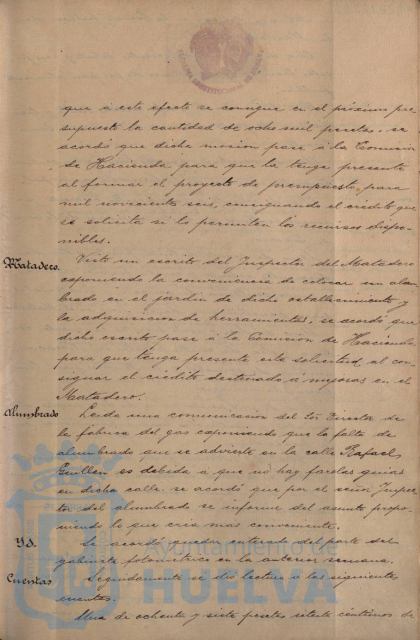 que á este efecto se consigne en el próximo pre
supuesto la cantidad de ocho mil pesetas, se
acordó que dicha mocion pase á la Comision
de Hacienda para que la tenga presente
al formar el proyecto de presupuesto para
mil novecientos seis, consignando el crédito que
se solicita si lo permiten los recursos dispo-
nibles.
Matadero. Visto un escrito del Inspector del Matadero
exponiendo la conveniencia de colocar un alam
brado en el jardin de dicho establecimiento y
la adquisicion de herramientas, se acordó que
dicho escrito pase á la Comision de Hacienda
para que tenga presente esta solicitud al con
signar el crédito destinado á mejoras en el
Matadero.
Alumbrado Leida una comunicacion del Sor. Director de
la fabrica del gas exponiendo que la falta de
alumbrado que se advierte en la calle Rafael
Guillen es debida a que no hay farolas
en dicha calle, se acordó que por el señor Inspec
tor del alumbrado se informe del asunto propo-
niendo lo que crea mas conveniente.
Yd. Se acordó quedar enterado del parte del
gabinete fotométrico en la anterior semana.
Cuentas Seguidamente se dió lectura a las siguientes
cuentas.
Una de ochenta y siete pesetas setenta céntimos de
Ayuntamiento de
HUELVA